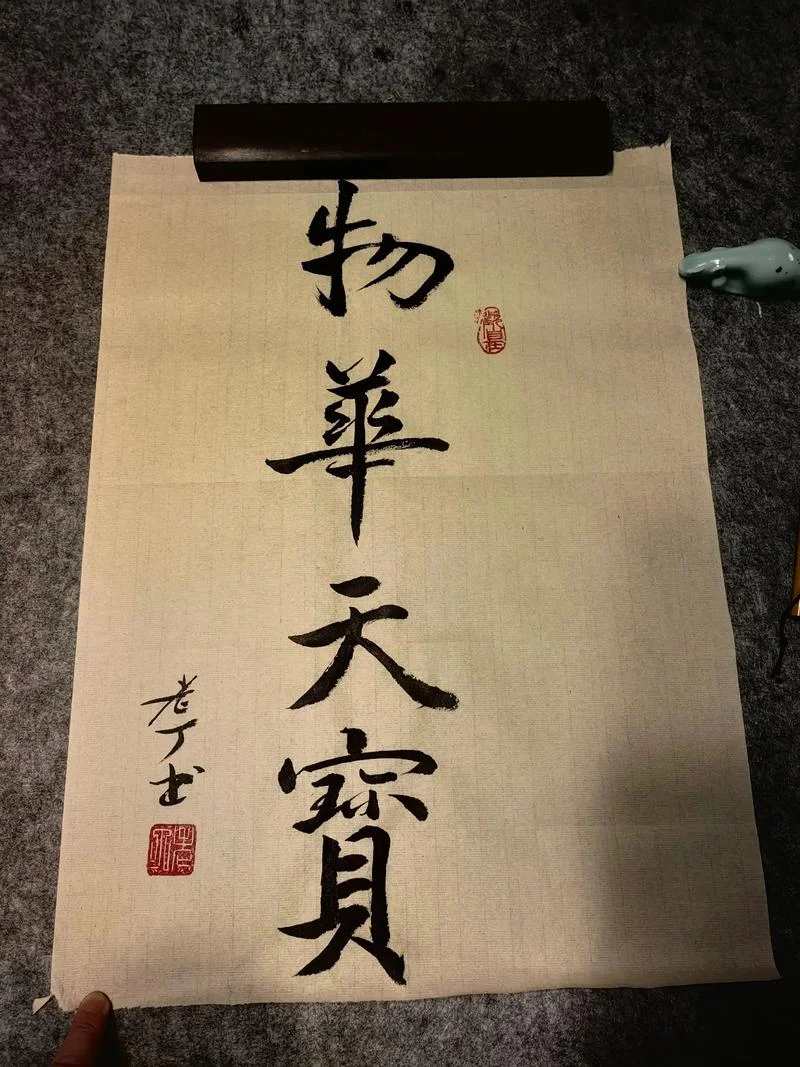 物華天寶
老丁书